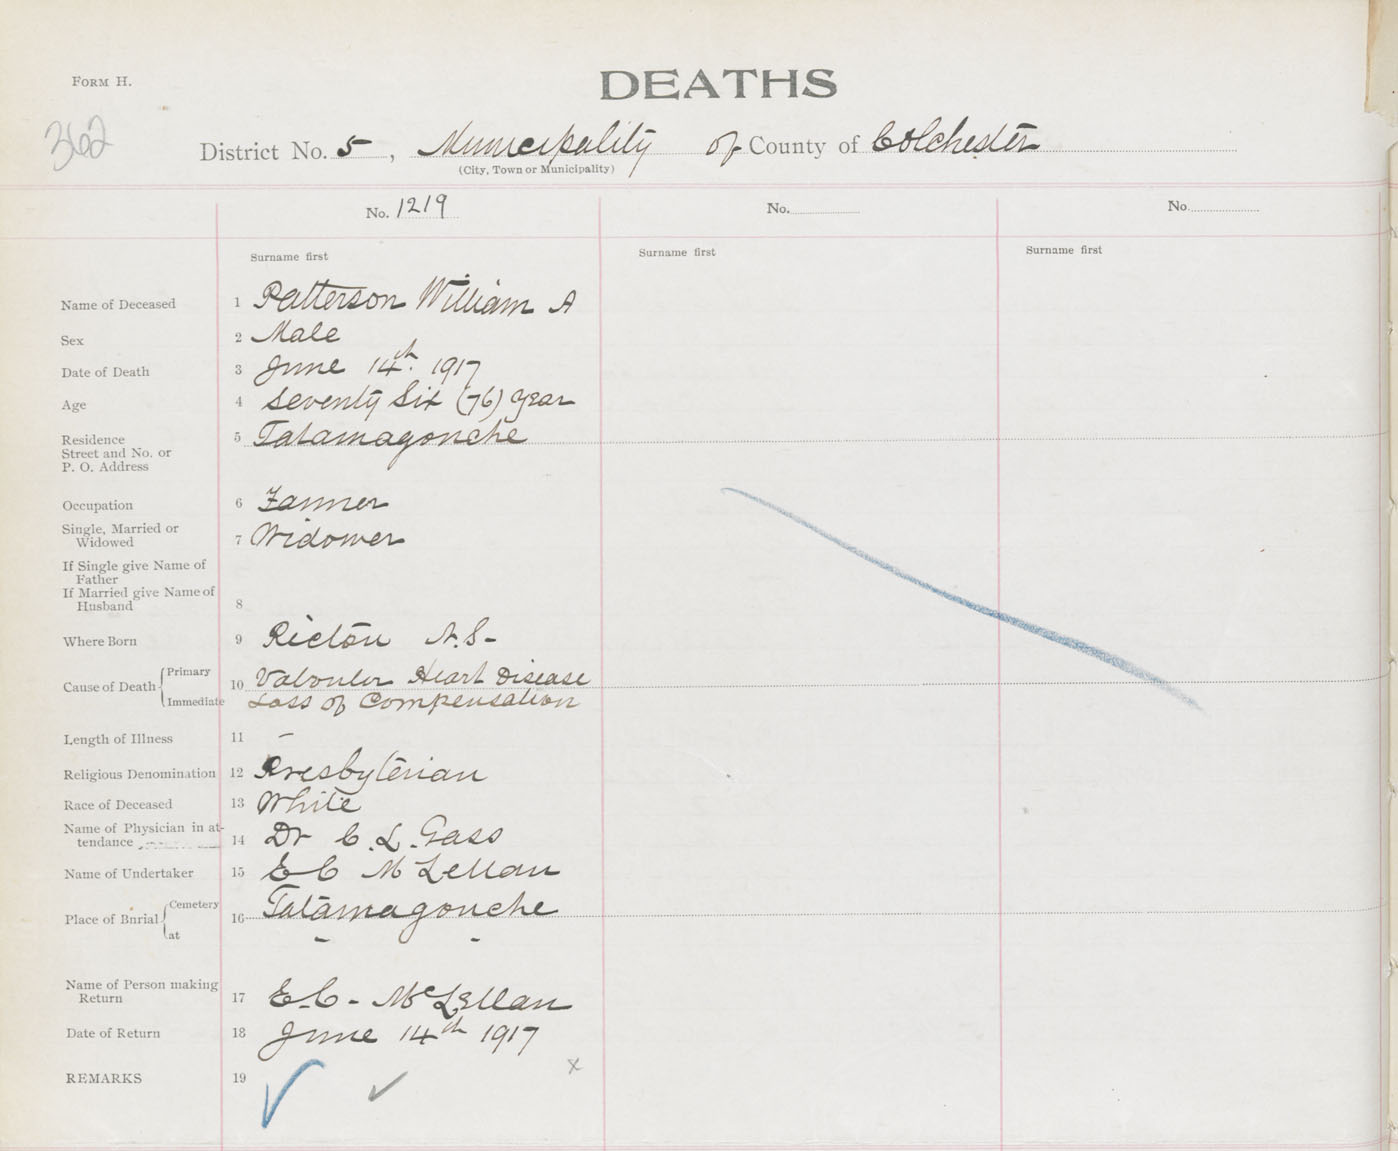 FORM H.
DEATHS
362
District No. 5, Municipality of County of Colchester
(City, Town or Municipality)
No. 1219 No. No.
Surname first Surname first Surname first
Name of Deceased 1 Patterson William A
Sex 2 Male
Date of Death 3 June 14th. 1917
Age 4 Seventy Six (76) Year
Residence 5 Tatamagouche
Street and No. or
P. O. Address
Occupation 6 Farmer
Single, Married or
Widowed 7 Widower
If Single give Name of
Father
If Married give Name of
Husband 8
Where Born 9 Pictou N.S-
Cause of Death Primary 10 Valvuler Heart Disease
Immediate Loss of Compensation
Length of Illness 11 -
Religious Denomination 12 Presbyterian
Race of Deceased 13 White
Name of Physician in at-
tendance 14 Dr C.L. Gass
Name of Undertaker 15 E C McLellan
Place of Burial Cemetery 16 Tatamagouche
at - -
Name of Person making
Return 17 E.C- McLellan
Date of Return 18 June 14th 1917
REMARKS 19 x